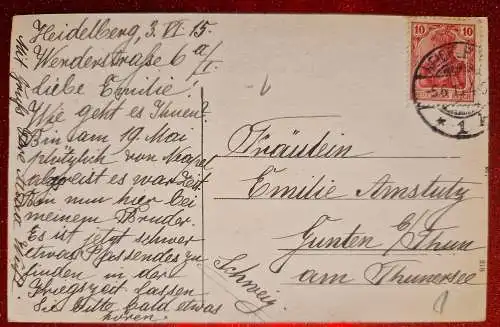 Heidelberg, 3. VI. 15.
Werderstraße 6 a/I.
Liebe Emilie!
Wie geht es Ihnen?
Bin am 19. Mai
plötzlich von Neapel
abgereist es war Zeit
Bin nun hier bei
meinem Bruder.
Es ist jetzt schwer
etwas Passendes zu
finden in der
Kriegszeit. Lassen
Sie bitte bald etwas
hören.
Mit Gruß Ihre
Fräulein
Emilie Amstutz
Gunten b/Thun
am Thunersee
Schweiz
10 10
* 1